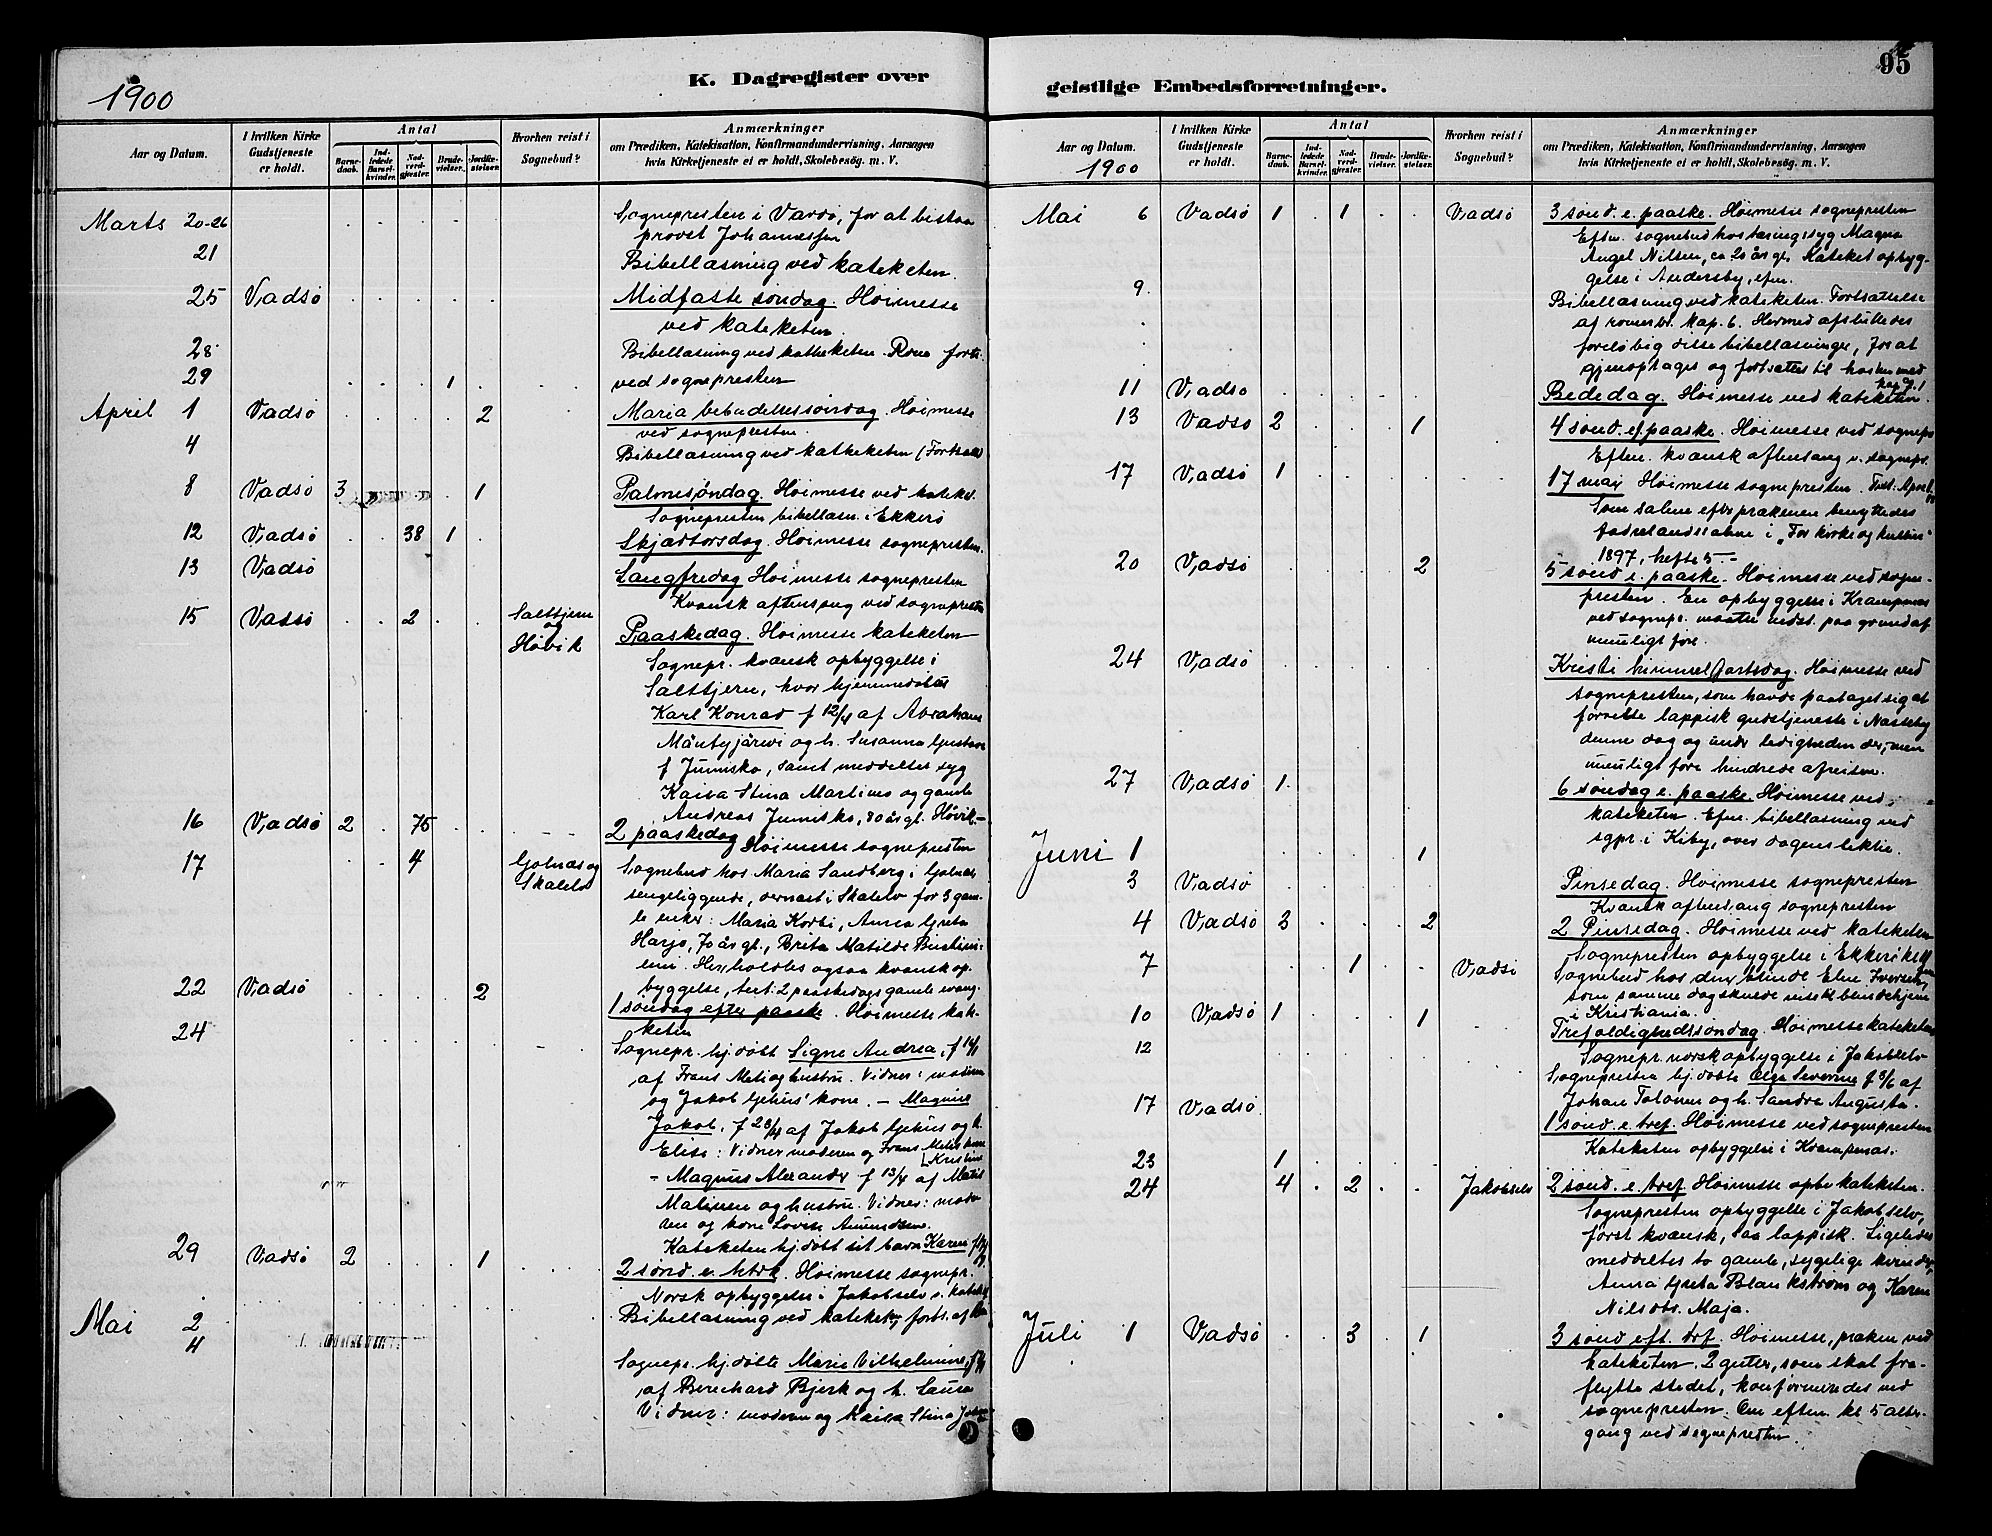 1900
K. Dagregister over
Aar og Datum.
I hvilken Kirke Gudstjeneste er holdt.
Antal
Barnedaab.
Indledede Barselkvinder.
Nadverdgjester.
Brudevielser.
Jordfæstelser.
Hvorhen reist i Sognebud?
Anmærkninger
om Prædiken, Katekisation, Konfirmandundervisning, Aarsagen
hvis Kirketjeneste ei er holdt, Skolebesøg, m. V.
Marts 20-26 Sognepresten i Vardø, for at bistaa
provst Johannessen
21 Bibellæsning ved kateketen.
25 Vadsø Midfaste søndag. Høimesse
ved kateketen.
28 Bibellæsning ved katheketen. Rom. forts.
29 1 ved sognepresten
April 1 Vadsø 2 Maria bebudelsessøndag. Høimesse
ved sognepresten.
4 Bibellæsning ved katheketen (Fortsat)
8 Vadsø 3 1 Palmesøndag. Høimesse ved kateket.
Sognepresten bibellæsn. i Ekkerø
12 Vadsø 38 1 Skjærtorsdag. Høimesse sognepresten.
13 Vadsø Langfredag Høimesse sognepresten
Kvænsk aftensang ved sognepresten
15 Vadsø 2 Salttjern
og
Høvik
Paaskedag. Høimesse kateketen
Sognepr. kvænsk opbyggelse i
Salttjern, hvor hjemmedøbtes
Karl Konrad f 12/4 af Abraham
Mäntyjärwi og h. Susanna Gustava
f Junisko, samt meddeltes syg
Kaisa Stina Martinus og gamle
Andreas Junisko, 80 år gl. Høvik.-
16 Vadsø 2 75 2 paaskedag Høimesse sognepresten
17 4 Golnæs og
Skallelv
Sognebud hos Maria Sandberg i Golnæs
sengeliggende, dernæst i Skallelv for 3 gam-
le enker: Maria Korbi, Anna Greta
Harjo, 70 år gl., Brita Matilde
Her holdtes ogsaa kvænsk op-
byggelse, text: 2 paaskedags gamle evang.
22 Vadsø 2 1 søndag efter paaske. Høimesse kate-
keten
24 Sognepr. hj. døbt Signe Andrea, f 14/1
af Frans Meti og hustru. Vidner: moderen
og Jakob kone. - Magnus
Jakob, f 28/4 af Jakob og h.
Elise: Vidner moderen og Frans Metis kone
Kristine
- Magnus Alexander f 13/4 af Matis
og hustru. Vidner: mode-
ren og kone Lovise Amundsens.
Kateketen hj. døbt sit barn Karen
29 Vadsø 2 1 2 sønd. e. Høimesse sognepr.
Norsk opbyggelse i Jakobselv v. kateket
Mai 2 Bibellæsning ved kateketen forts. af
4 Sognepr. hj. døbte Marie Vilhelmine,
af Bernhard Bjerk og h. Laura
Vidner: moderen og Kaisa Stina
geistlige Embedsforretninger.
95
Aar og Datum.
1900
I hvilken Kirke Gudstjeneste er holdt.
Antal
Barnedaab.
Indledede Barselkvinder.
Nadverdgjester.
Brudevielser.
Jordfæstelser.
Hvorhen reist i Sognebud?
Anmærkninger
om Prædiken, Katekisation, Konfirmandundervisning, Aarsagen
hvis Kirketjeneste ei er holdt, Skolebesøg, m. V.
Mai 6 Vadsø 1 1 Vadsø 3 sønd. e. paaske. Høimesse sognepresten
Eftm. sognebud hos tæringssyg Magna
Angel Nilsen, ca 20 år gl. Kateket opbyg-
gelse i Andersby, eftm.
9 Bibellæsning ved kateketen. Fortsættelse
af romerbr. kap. 6. Hermed afsluttedes
foreløbig disse bibellæsninger, for at
gjenoptages og fortsættes til høsten med
kap. 9. 1
11 Vadsø Bededag. Høimesse ved kateketen.
13 Vadsø 2 1 4 sønd. ef. paaske. Høimesse ved sognepr.
Eftm. kvænsk aftensang v. sognepr.
17 Vadsø 1 17 mai Høimesse sognepresten. Text:
Som salme efter prækenen benyttedes
fædrelandssalme i "For kirke og kultur"
1897, hefte 5.-
20 Vadsø 2 5 sønd. e. paaske. Høimesse ved sogne-
presten. En opbyggelse i Krampenæs
ved sognepr. maatte nedst. paa grund af
umuligt føre.
24 Vadsø Kristi himmelfartsdag. Høimesse ved
sognepresten, som havde paataget sig at
forrette lappisk gudstjeneste i Nesseby
denne dag og under ledigheden der, men
umuligt føre hindrede afreisen.
27 Vadsø 1 6 søndag e. paaske. Høimesse ved
kateketen. Eftm. bibellæsning ved
sgpr. i Kiby, over dagens lektie.
Juni 1 1
3 Vadsø Pinsedag. Høimesse sognepresten
Kvænsk aftensang sognepresten
4 Vadsø 3 2 2 Pinsedag. Høimesse ved kateketen
Sognepresten opbyggelse i Ekkerø
7 1 Vadsø Sognebud hos den blinde Elen Iversen,
som samme dag skulde reise til blindehjem
i Kristiania.
10 Vadsø 1 1 Trefoldighedssøndag. Høimesse kateketen
Sognepr. norsk opbyggelse i Jakobselv
12 Sognepresten hj. døbte Olga Severine f 3/6 af
Johan Tolonen og h. Sandra Augusta.
17 Vadsø 1 sønd. e. tref. Høimesse ved sognepresten
Kateketen opbyggelse i Krampenæs.
23 1
24 4 2 Jakobselv 2 sønd. e. tref. Høimesse kateketen.
Sognepresten opbyggelse i Jakobselv,
først kvænsk, saa lappisk. Ligeledes
meddeltes to gamle, sygelige kvinder,
Anna Greta Blankstrøm og Karen
Nilsdtr. Maja.
Juli 1 Vadsø 3 1 3 sønd eft. trf. Høimesse, præken ved
kateketen. 2 gutter, som skal fra-
flytte stedet, konfirmeredes ved
sognepresten. Om eftm. kl 5 alter-
gang ved sognepresten.